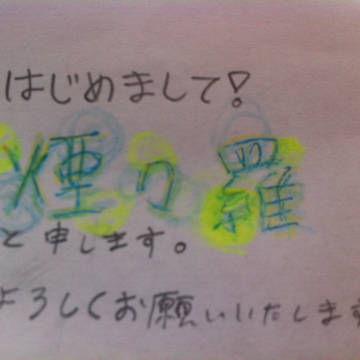 はじめまして!
煙々羅
と申します。
よろしくお願いいたします